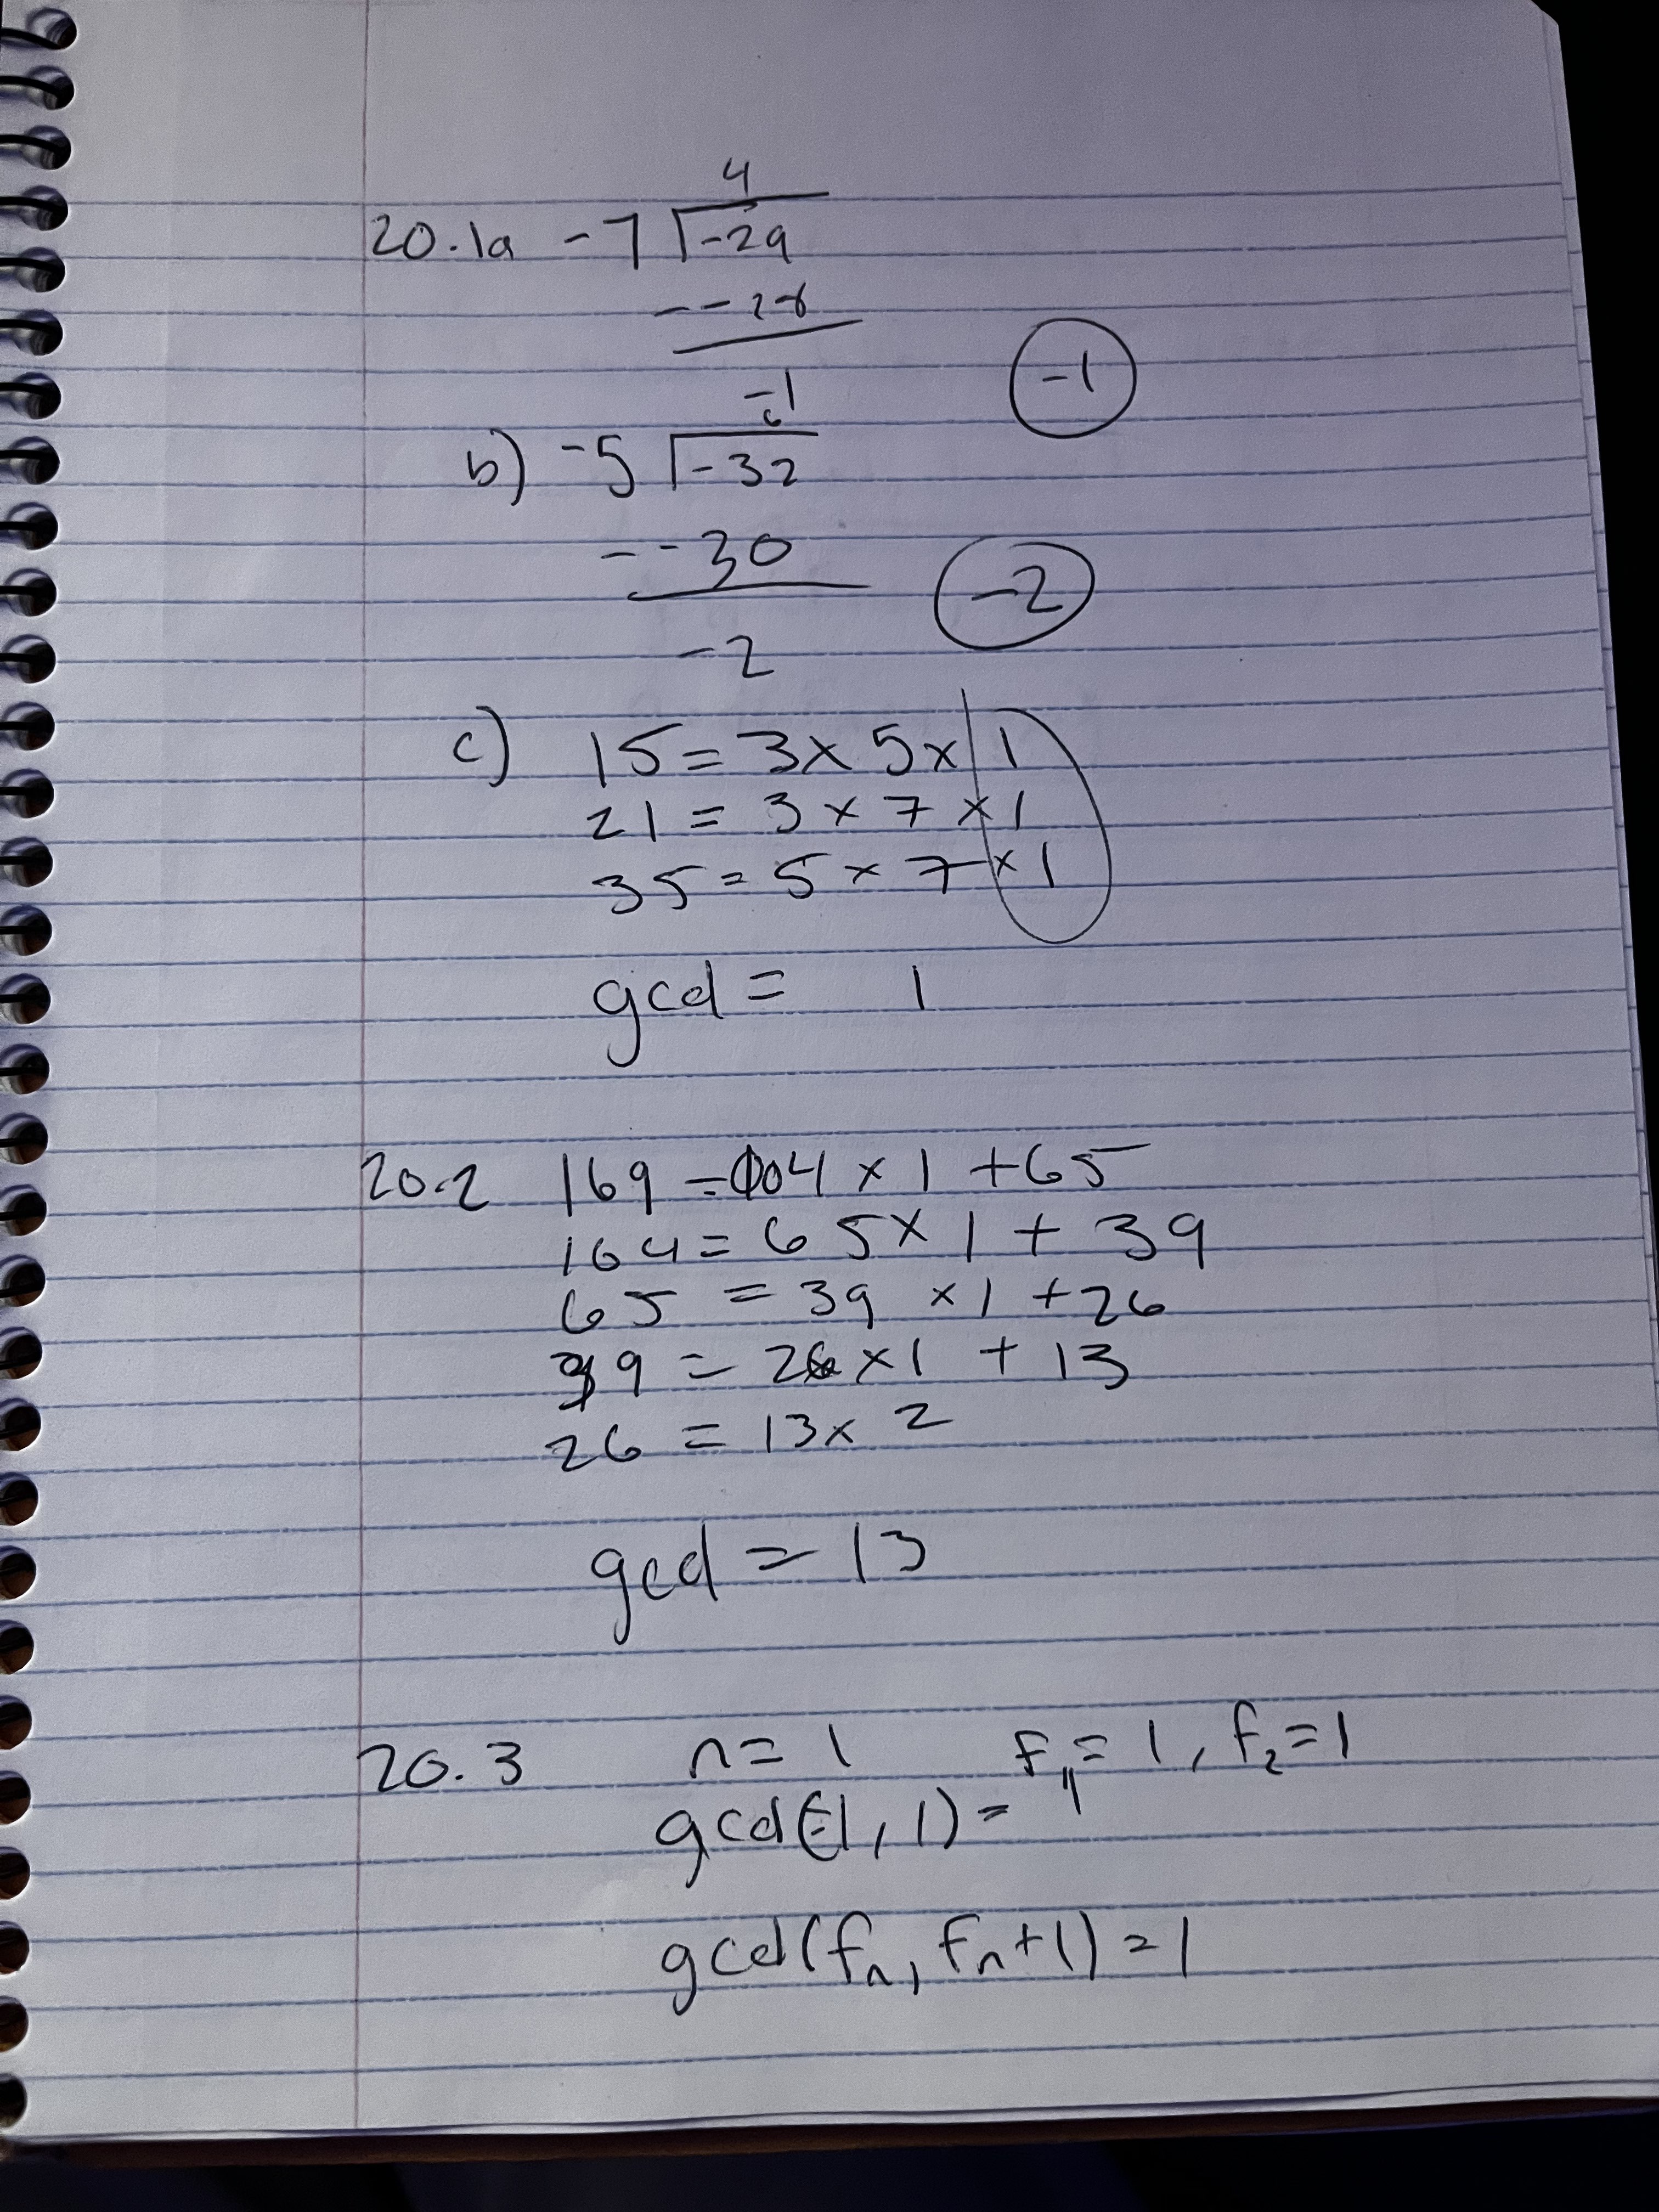 4
20.1a -7 √-29
--28
-1
-1
6
b) -5 √-32
--30
-2
-2
c) 15 = 3 x 5 x 1
21 = 3 x 7 x 1
35 = 5 x 7 x 1
gcd = 1
20.2 169 = 104 x 1 + 65
104 = 65 x 1 + 39
65 = 39 x 1 + 26
39 = 26 x 1 + 13
26 = 13 x 2
gcd = 13
20.3 n = 1 F1 = 1, F2 = 1
gcd(1, 1) = 1
gcd(Fn, Fn+1) = 1